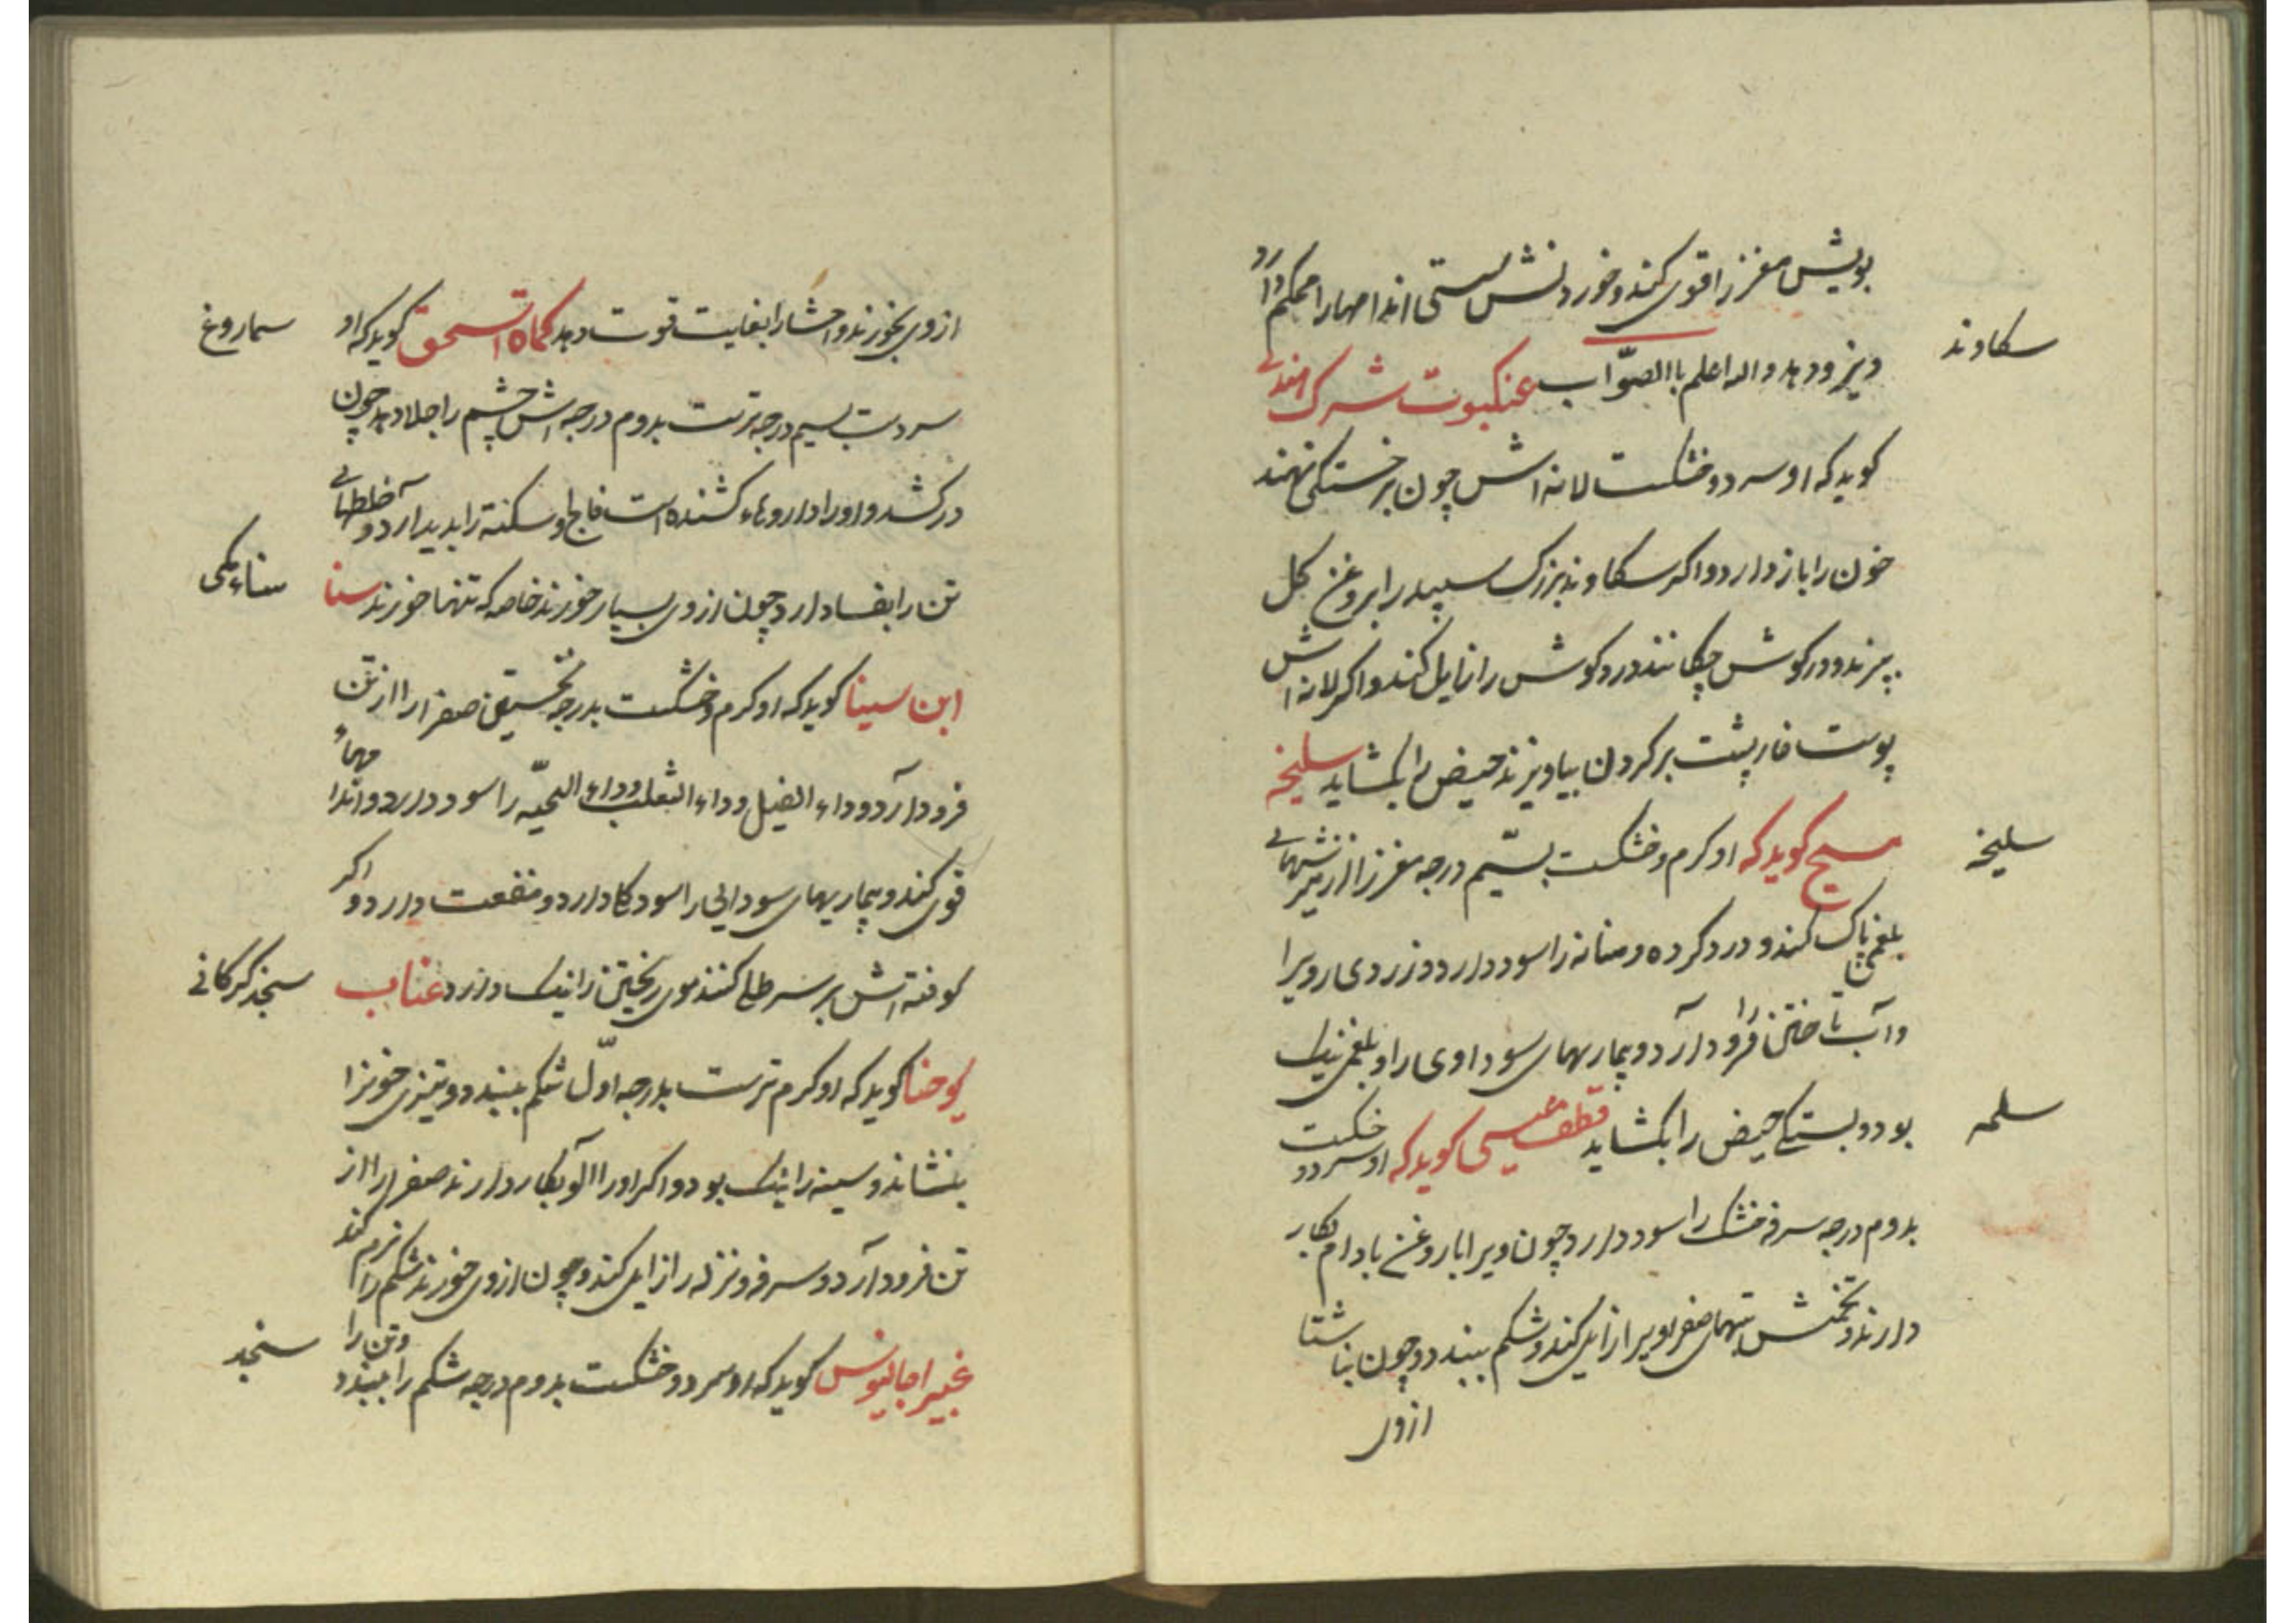 بویش مغز را قوی کند و خوردنش سستی اندامها را محکم دارد
و نیرو دهد والله اعلم باالصوّاب عنکبوت شرک هندی
سکاوند
کوید که او سرد و خشکست لانه اش چون بر خستکی نهند
خون را باز دارد و اکر سکاوند بزرک سپید را بروغن کل
بپزند و در کوش چکانند درد کوش را زایل کند و اکر لانه اش
پوست خارپشت بر کردن بیاویزند حیض را بکشاید سلیخه
مسیح کوید که او کرم و خشکست بسیّم درجه مغز را از ریزشهائی
سلیخه
بلغمی پاک کند و درد کرده و مثانه را سود دارد و زردی رویرا
و آب تاختن را فرود آرد و بیماریهای سوداوی را و بلغمی نیک
بود و بستکی حیض را بکشاید قطف عیسی کوید که او سرد و خشکست
سلمه
بدوم درجه سرفه خشک را سود دارد چون ویرا با روغن بادام بکار
دارند و تخمش تبهای صفراویرا زایل کند و شکم ببندد و چون بناشتا
ازوی
ازوی بخورند و احشا را بغایت قوت دهد کماه اسحق کوید که او
سماروغ
سردست بسیم درجه ترست بدوم درجه اش چشم را جلا دهد چون
درکشد و او را داروهاء کشنده است فالج و سکته را پدید آرد و خلطهائی
تن را بفساد آرد چون ازوی بسیار خورند خاصه که تنها خورند سنا
سناء مکی
ابن سینا کوید که او کرم و خشکست بدرجه نخستین صفرا را از تن
فرود آرد و داء الفیل و داء الثعلب و داء الحیّه را سود دارد و اندامهاء
قوی کند و بیماریهای سودایی را سود دارد و منفعت دارد و اکر
کوفته اش بر سر طلی کنند موی ریختن را نیک دارد عناب
سنجد کرکانی
یوحنا کوید که او کرم ترست بدرجه اوّل شکم ببندد و تیزی خونرا
بنشاند و سینه را نیک بود و اکر او را با آلو بکار دارند صفرا را از
تن فرود آرد و سرفه و نزله را زایل کند و چون ازوی خورند شکم را نرم کند
غبیرا جالینوس کوید که او سرد و خشکست بدوم درجه شکم را ببندد و تن را
سنجد